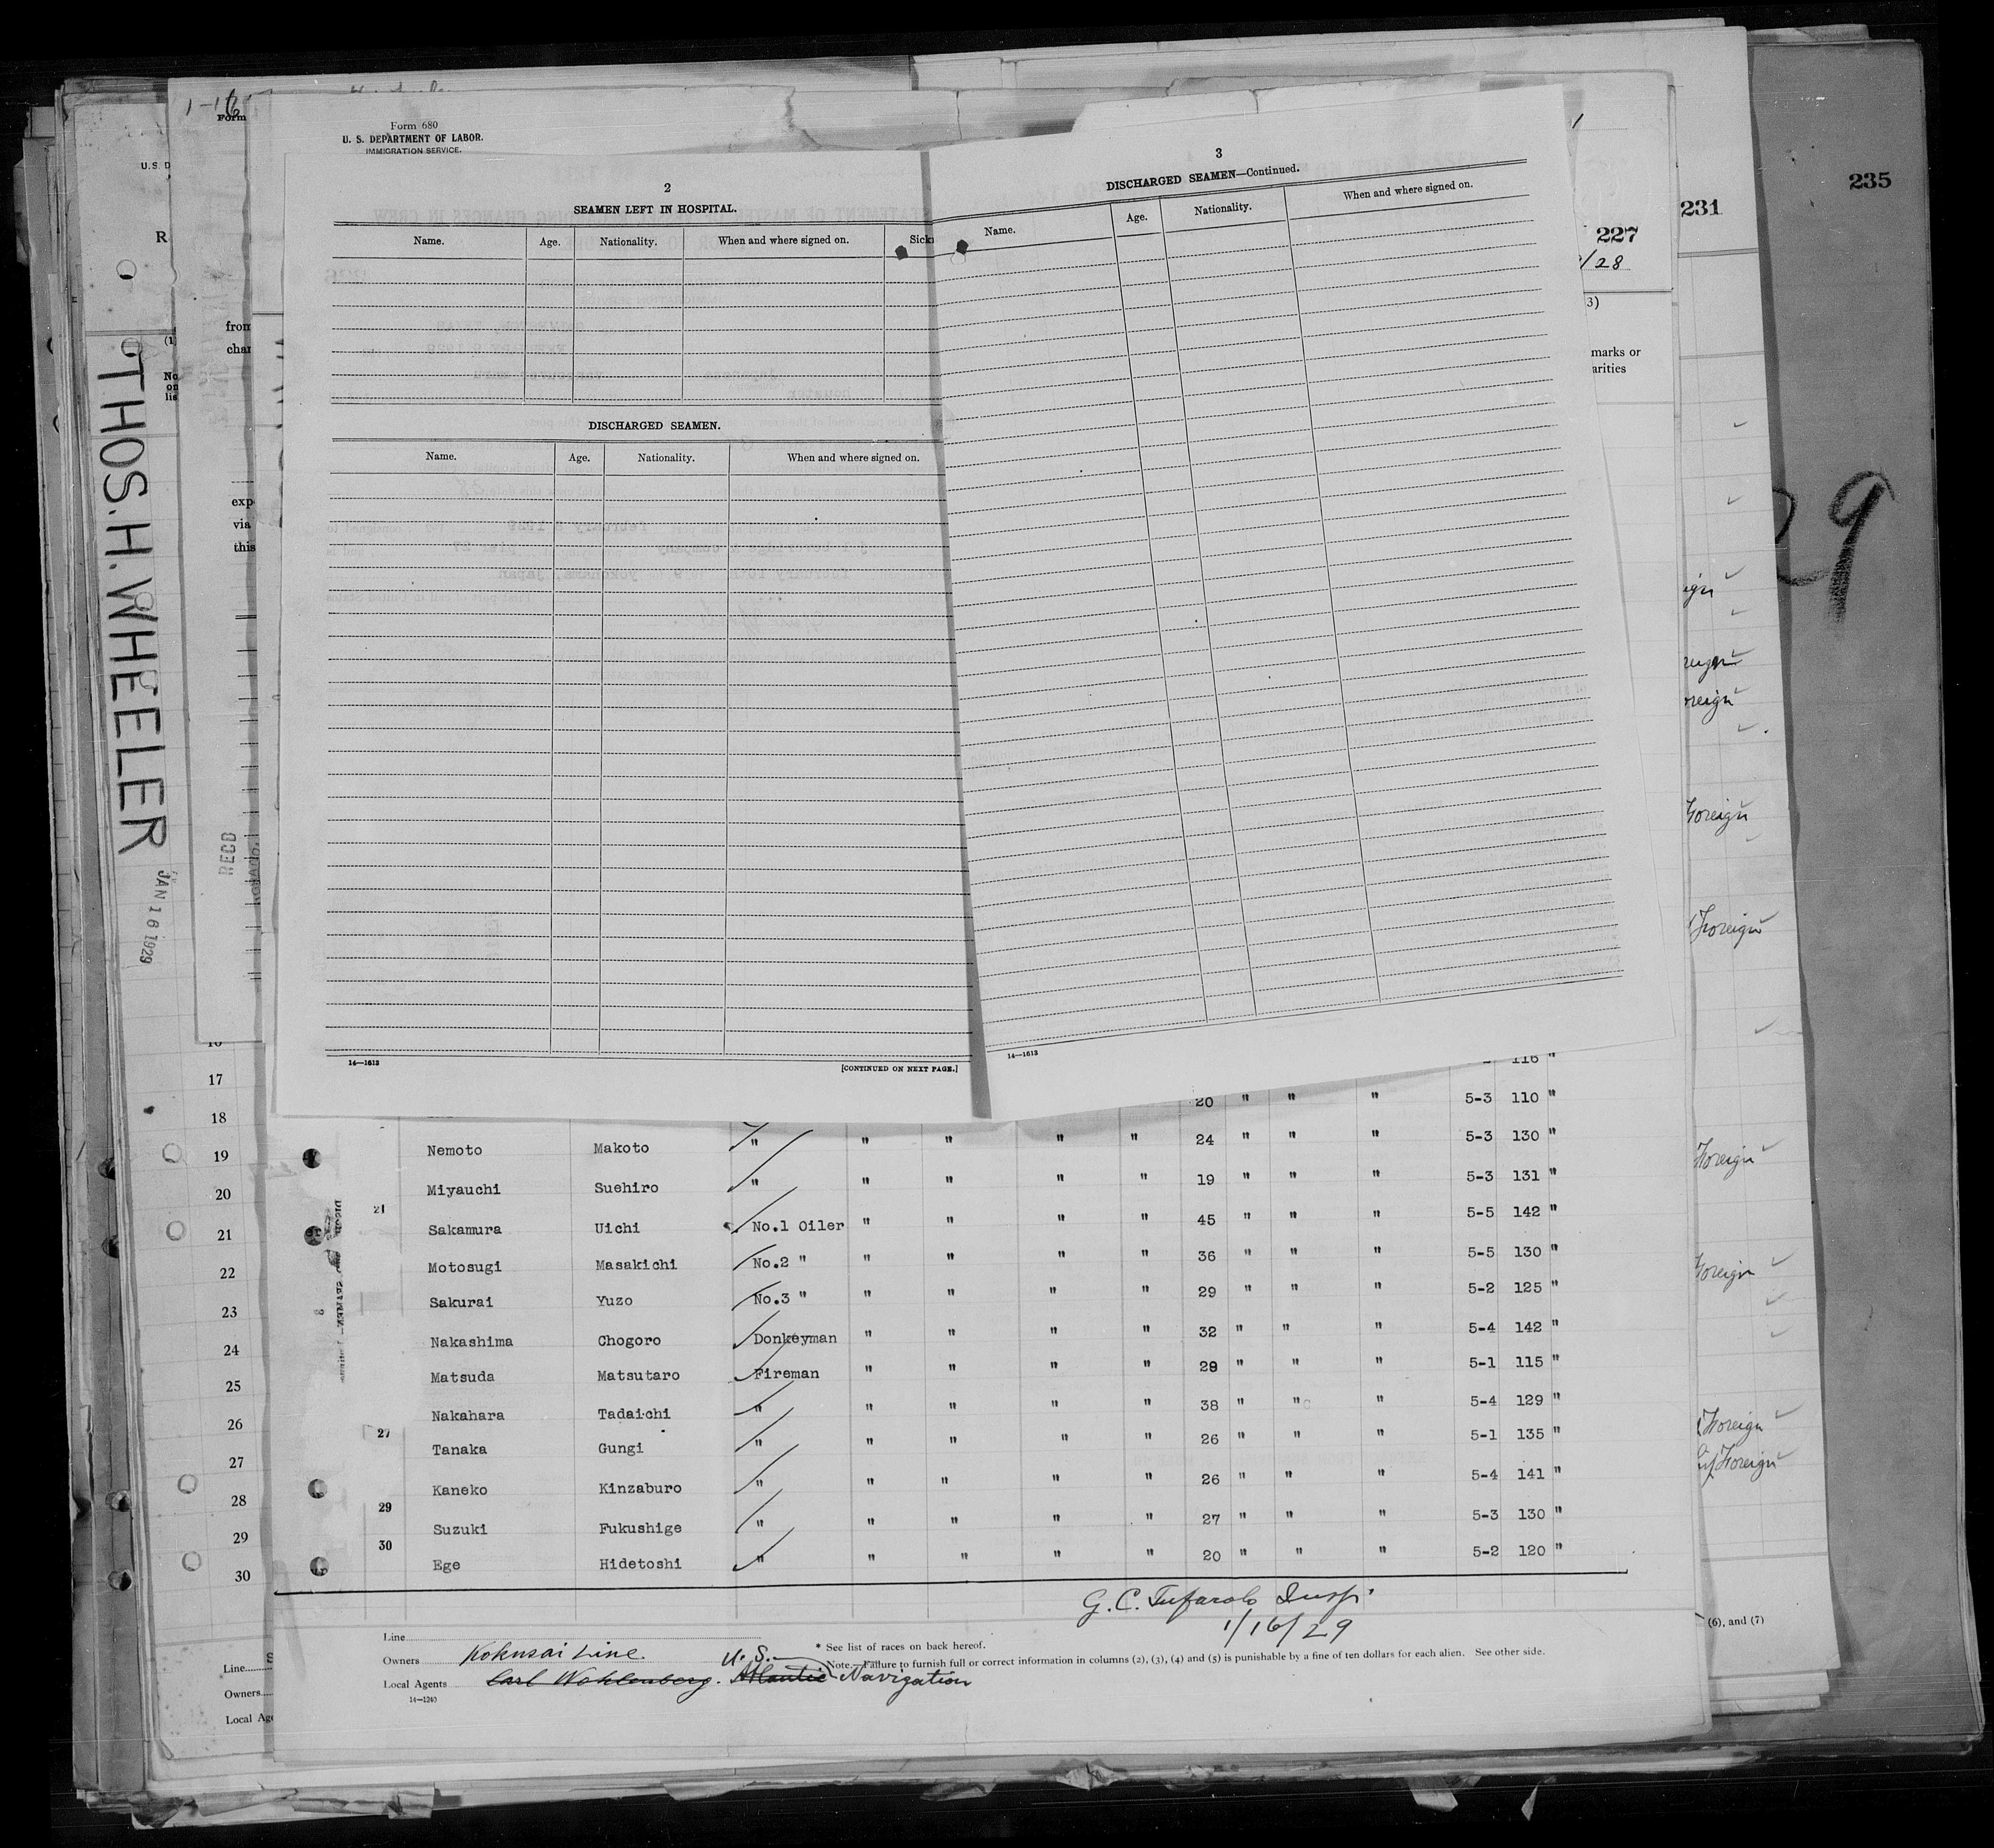 1-16
Form
U. S. D
R
Form 680
U. S. DEPARTMENT OF LABOR.
IMMIGRATION SERVICE.
235
231
227
/28
3)
marks or
arities
2
SEAMEN LEFT IN HOSPITAL.
Name. Age. Nationality. When and where signed on.
DISCHARGED SEAMEN.
Name. Age. Nationality. When and where signed on.
14—1613
[CONTINUED ON NEXT PAGE.]
3
DISCHARGED SEAMEN—Continued.
Name. Age. Nationality. When and where signed on.
14—1613
from
char
exp
via
this
THOS. H. WHEELER
JAN 16 1929
RECD
29
Foreign
Foreign
Foreign
Foreign
Foreign
Foreign
116 "
17
18 20 " " " 5-3 110 "
19 Nemoto Makoto " " " " " 24 " " " 5-3 130 "
20 Miyauchi Suehiro " " " " " 19 " " " 5-3 131 "
21 21 Sakamura Uichi No.1 Oiler " " " " 45 " " " 5-5 142 "
22 Motosugi Masakichi No.2 " " " " " 36 " " " 5-5 130 "
23 Sakurai Yuzo No.3 " " " " " 29 " " " 5-2 125 "
24 Nakashima Chogoro Donkeyman " " " " 32 " " " 5-4 142 "
25 Matsuda Matsutaro Fireman " " " " 29 " " " 5-1 115 "
26 Nakahara Tadaichi " " " " " 38 " " " 5-4 129 "
27 27 Tanaka Gungi " " " " " 26 " " " 5-1 135 "
28 Kaneko Kinzaburo " " " " " 26 " " " 5-4 141 "
29 29 Suzuki Fukushige " " " " " 27 " " " 5-3 130 "
30 30 Ege Hidetoshi " " " " " 20 " " " 5-2 120 "
G. C. Tufarolo Insp.
1/16/29
Line
Owners Kokusai Line.
Local Agents Carl Wohlenberg. U. S. Atlantic Navigation
14—1240
* See list of races on back hereof.
Note.—Failure to furnish full or correct information in columns (2), (3), (4) and (5) is punishable by a fine of ten dollars for each alien. See other side.
(6), and (7)
Line
Owners
Local Age